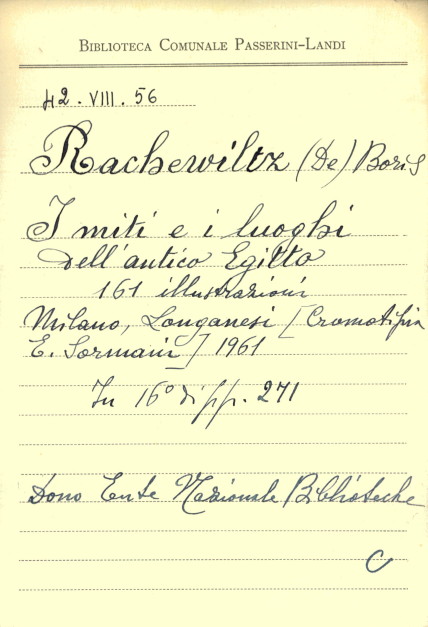 BIBLIOTECA COMUNALE PASSERINI-LANDI
42. VIII. 56
Rachewiltz (De) Boris
I miti e i luoghi
dell'antico Egitto
161 illustrazioni
Milano, Longanesi [Cromotipia
E. Sormani] 1961
In 16° di pp. 271
Dono Ente Nazionale Biblioteche
C